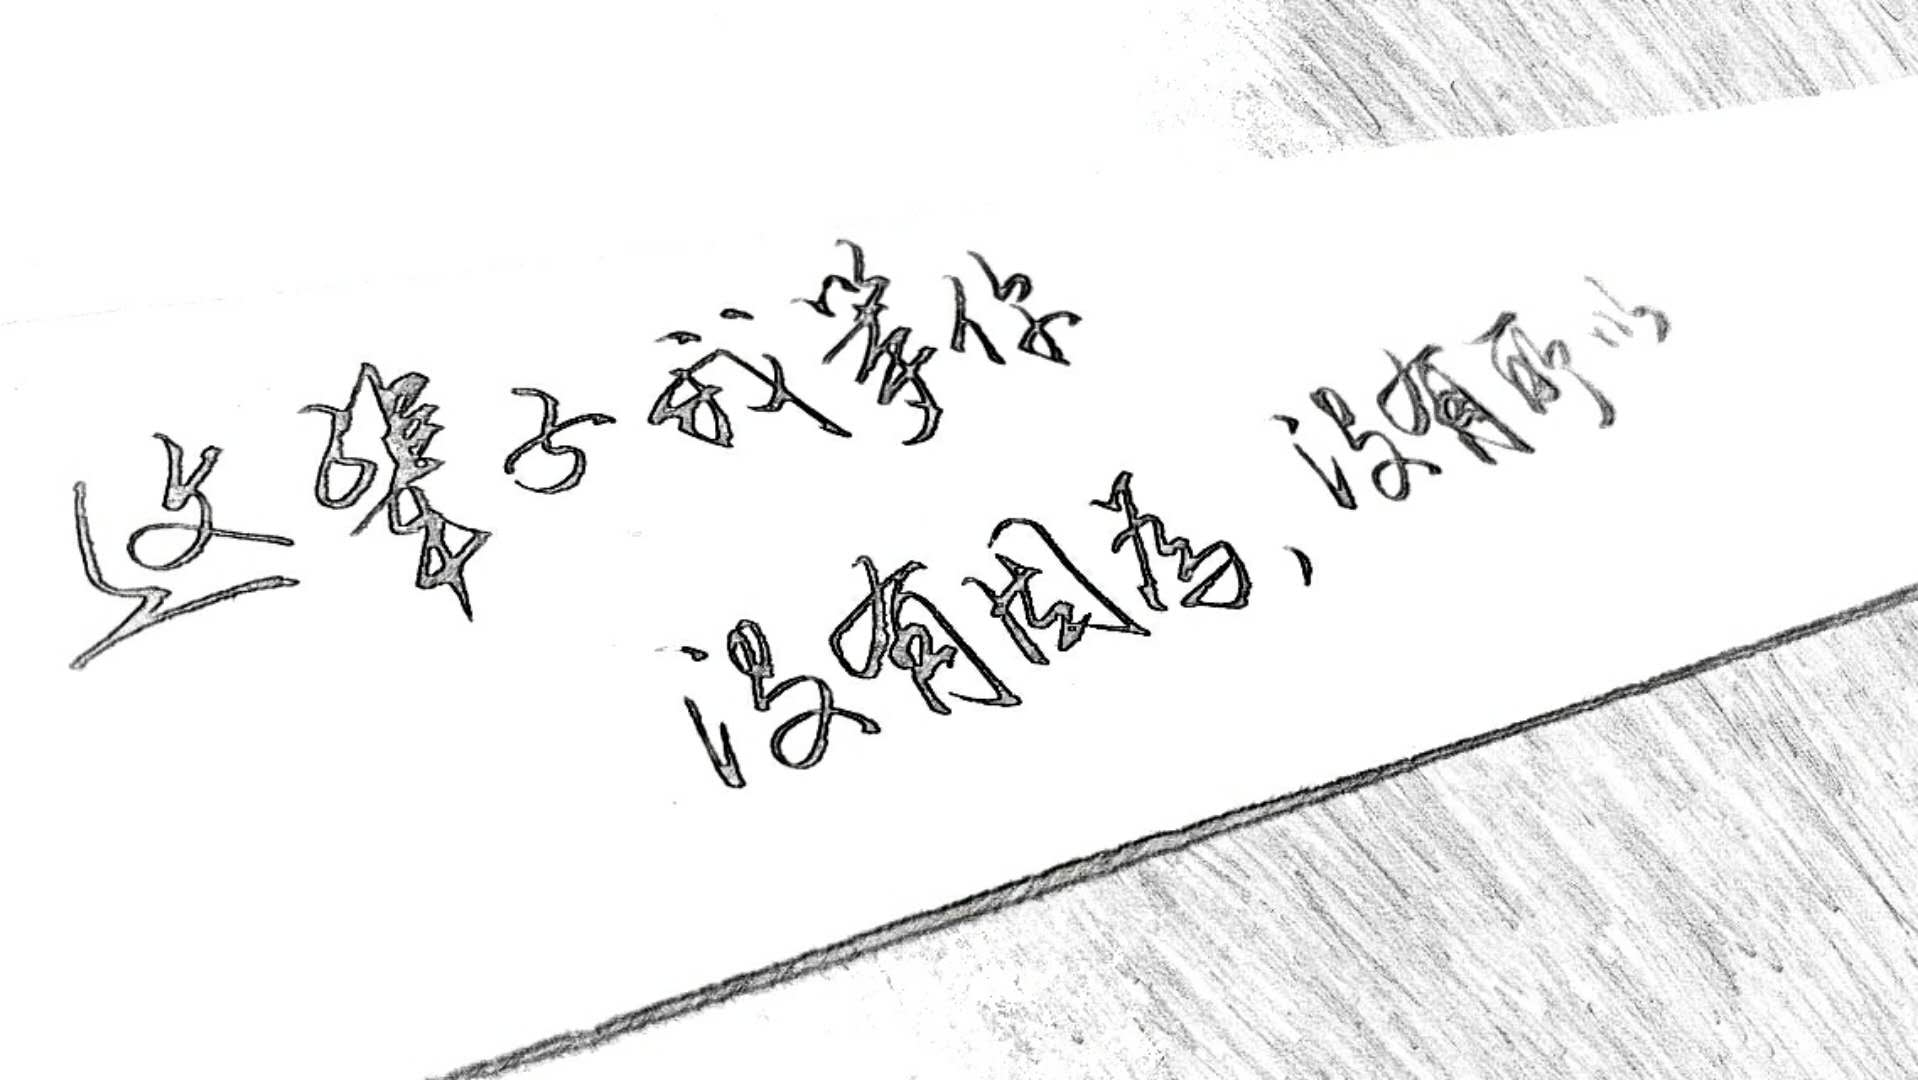 这辈子我等你
没有因为、没有所以